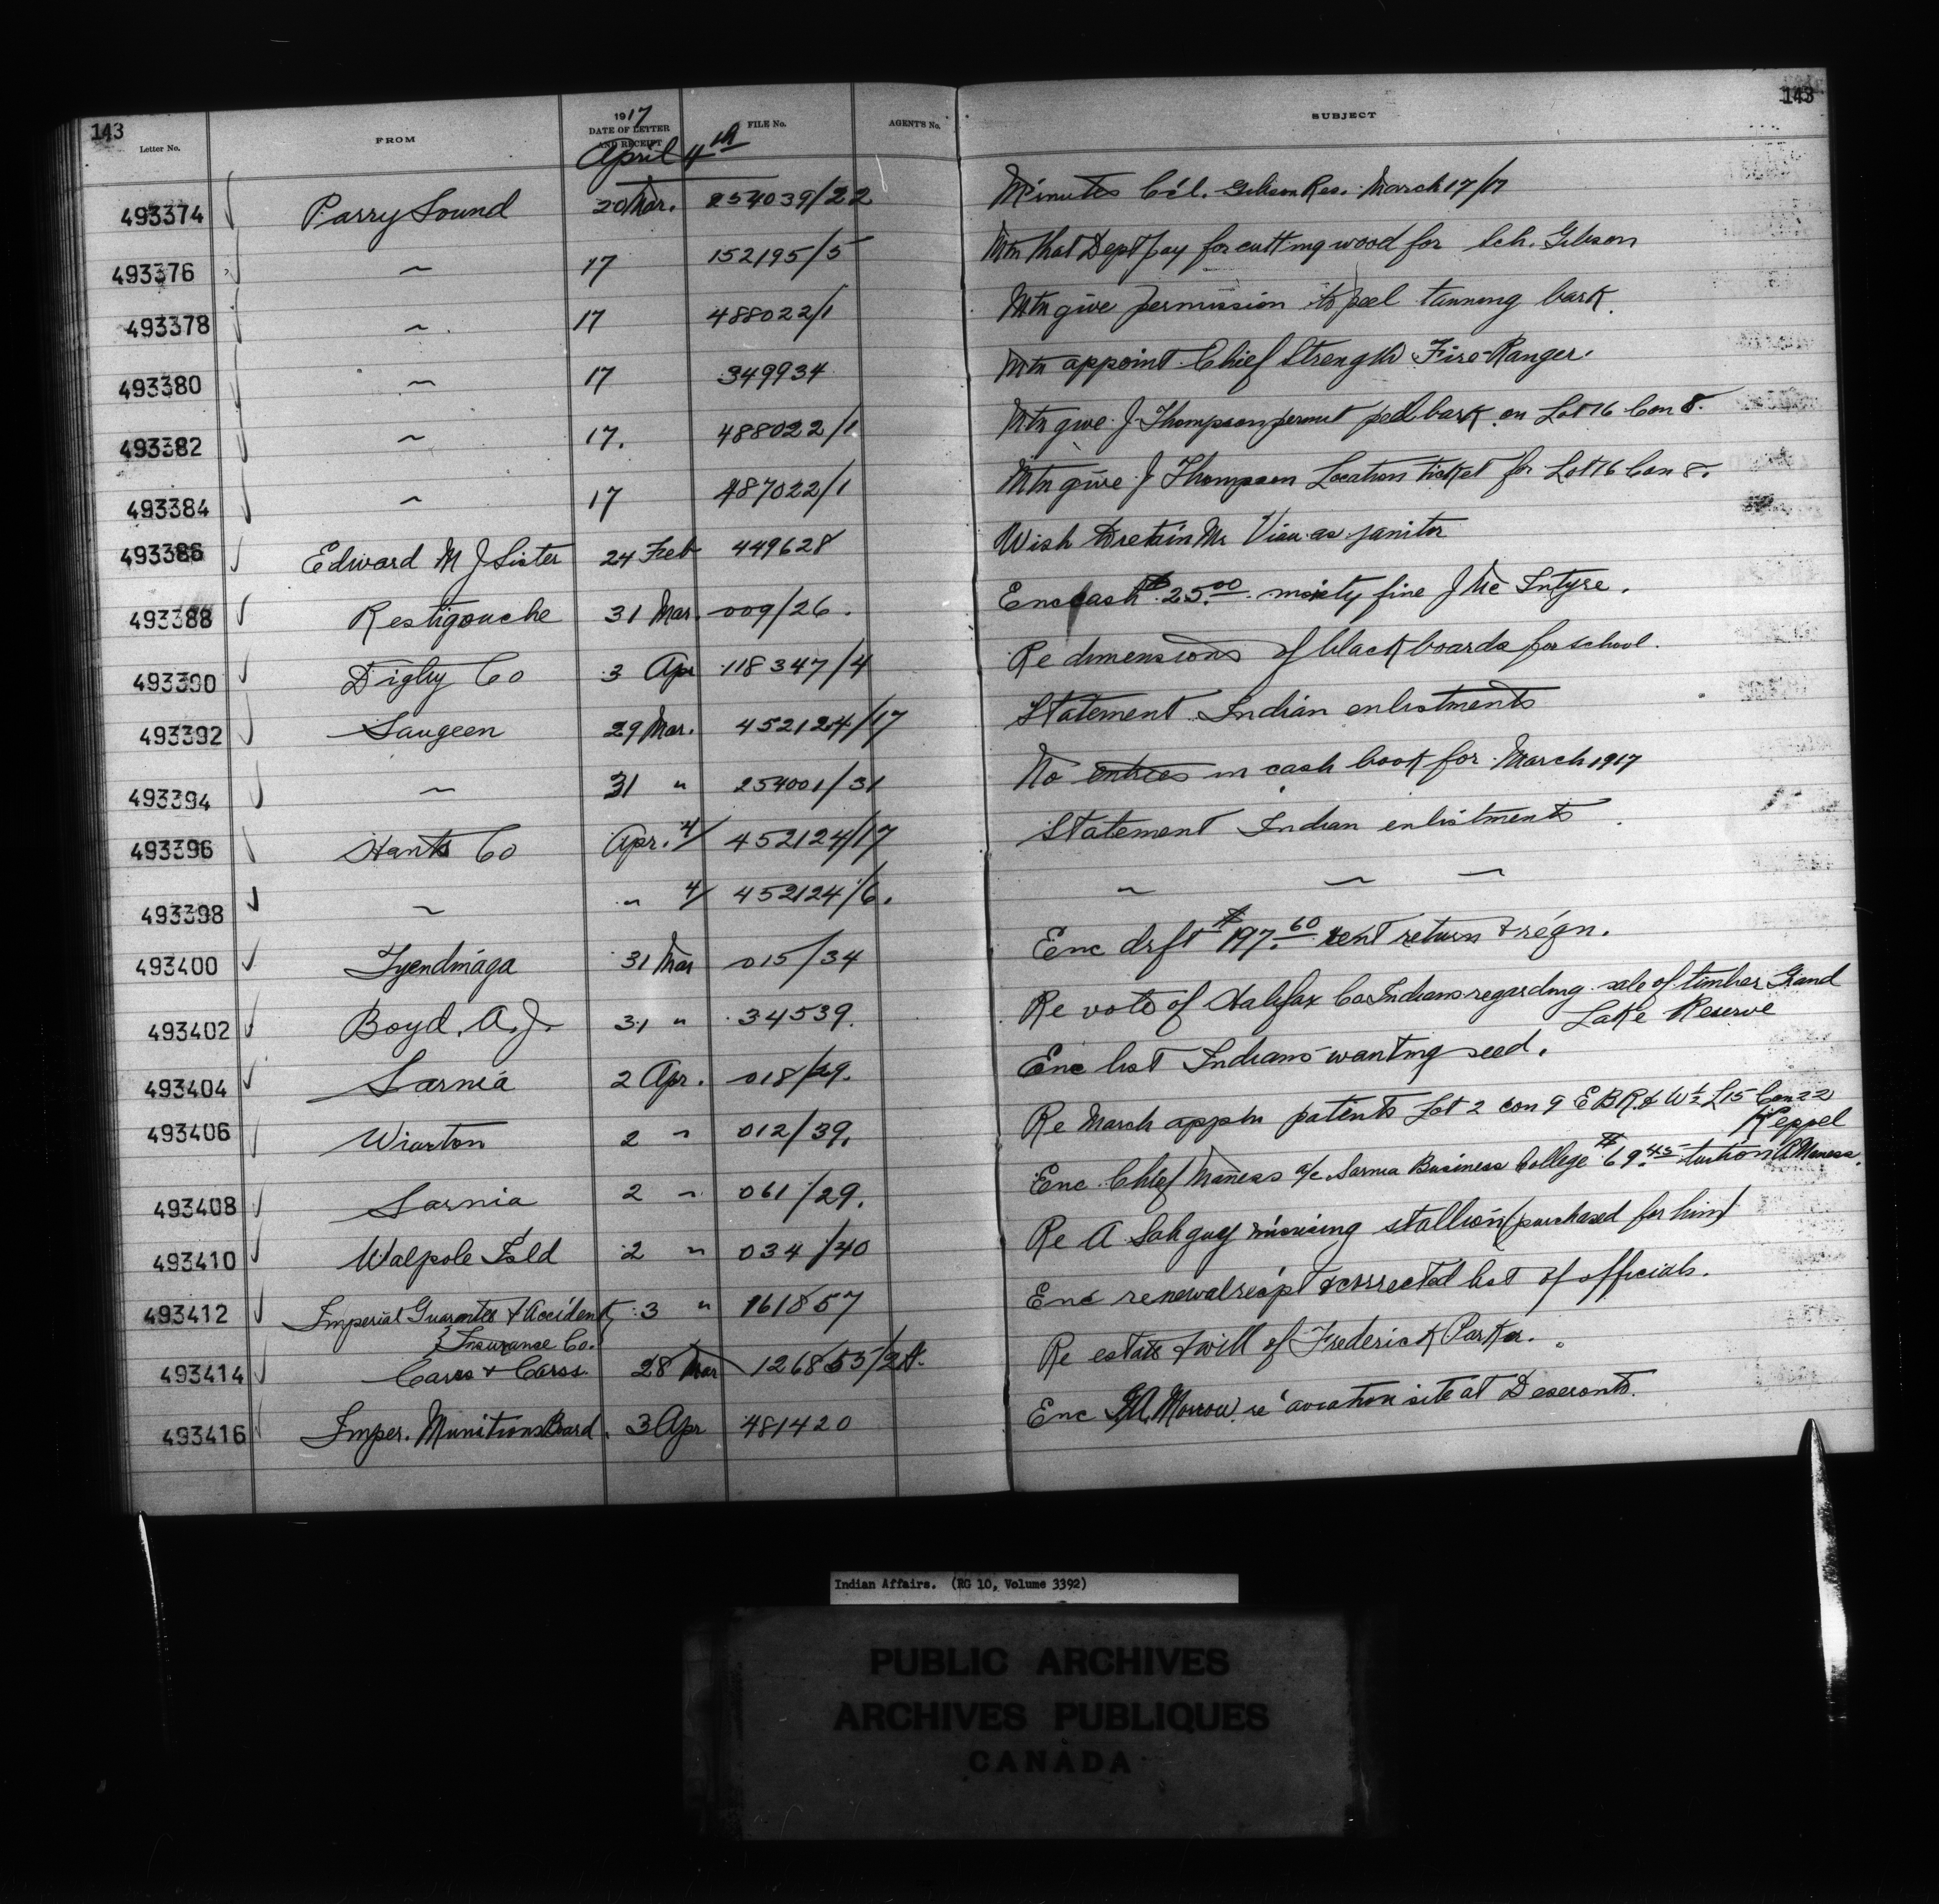 143
143
Letter No.
FROM
1917
DATE OF LETTER
AND RECEIPT
FILE No.
AGENT'S No.
SUBJECT
April 4th
493374 Parry Sound 20 Mar. 254039/22 Minutes C'l. Gibson Res. March 17/17
493376 〃 17 152195/5 Mtn that Dept pay for cutting wood for Sch. Gibson
493378 〃 17 488022/1 Mtn give permission to peel tanning bark.
493380 〃 17 349934 Mtn appoint Chief Strength Fire-Ranger.
493382 〃 17. 488022/1 Mtn give J. Thompson permit peel bark on Lot 16 Con 8.
493384 〃 17 487022/1 Mtn give J Thompson Location ticket for Lot 16 Con 8.
493386 Edward M J Sister 24 Feb 449628 Wish to retain Mr Viau as janitor
493388 Restigouche 31 Mar. 009/26. Enc cash $25.00 moiety fine J Mc Intyre.
493390 Digby Co 3 Apr 118347/4 Re dimensions of blackboards for school.
493392 Saugeen 29 Mar. 452124/17 Statement Indian enlistments
493394 〃 31 " 254001/31 No entries in cash book for March 1917
493396 Hants Co Apr. 4/ 452124/17 Statement Indian enlistments
493398 〃 " 4/ 452124/6. 〃 〃 〃
493400 Tyendinaga 31 Mar 015/34 Enc drft $197.60 rent return & reqn.
493402 Boyd, A. J. 31 " 34539. Re vote of Halifax Co Indians regarding sale of timber Grand
Lake Reserve
493404 Sarnia 2 Apr. 018/29. Enc list Indians wanting seed.
493406 Wiarton 2 " 012/39. Re March appln patents Lot 2 con 9 E B R. & W½ L15 Con 22
Keppel
493408 Sarnia 2 " 061/29. Enc Chief Maness a/c Sarnia Business College $69.45 tuition A Maness.
493410 Walpole Isld 2 " 034/40 Re A Sahguj misusing stallion (purchased for him)
493412 Imperial Guarantee & Accident 3 " 161857 Enc renewal recpt & corrected list of officials.
Insurance Co.
493414 Carss & Carss 28 Mar 126853/2A. Re estate & will of Frederick Parker.
493416 Imper. Munitions Board. 3 Apr 481420 Enc Morrow re aviation site at Deseronto.
Indian Affairs. (RG 10, Volume 3392)
PUBLIC ARCHIVES
ARCHIVES PUBLIQUES
CANADA